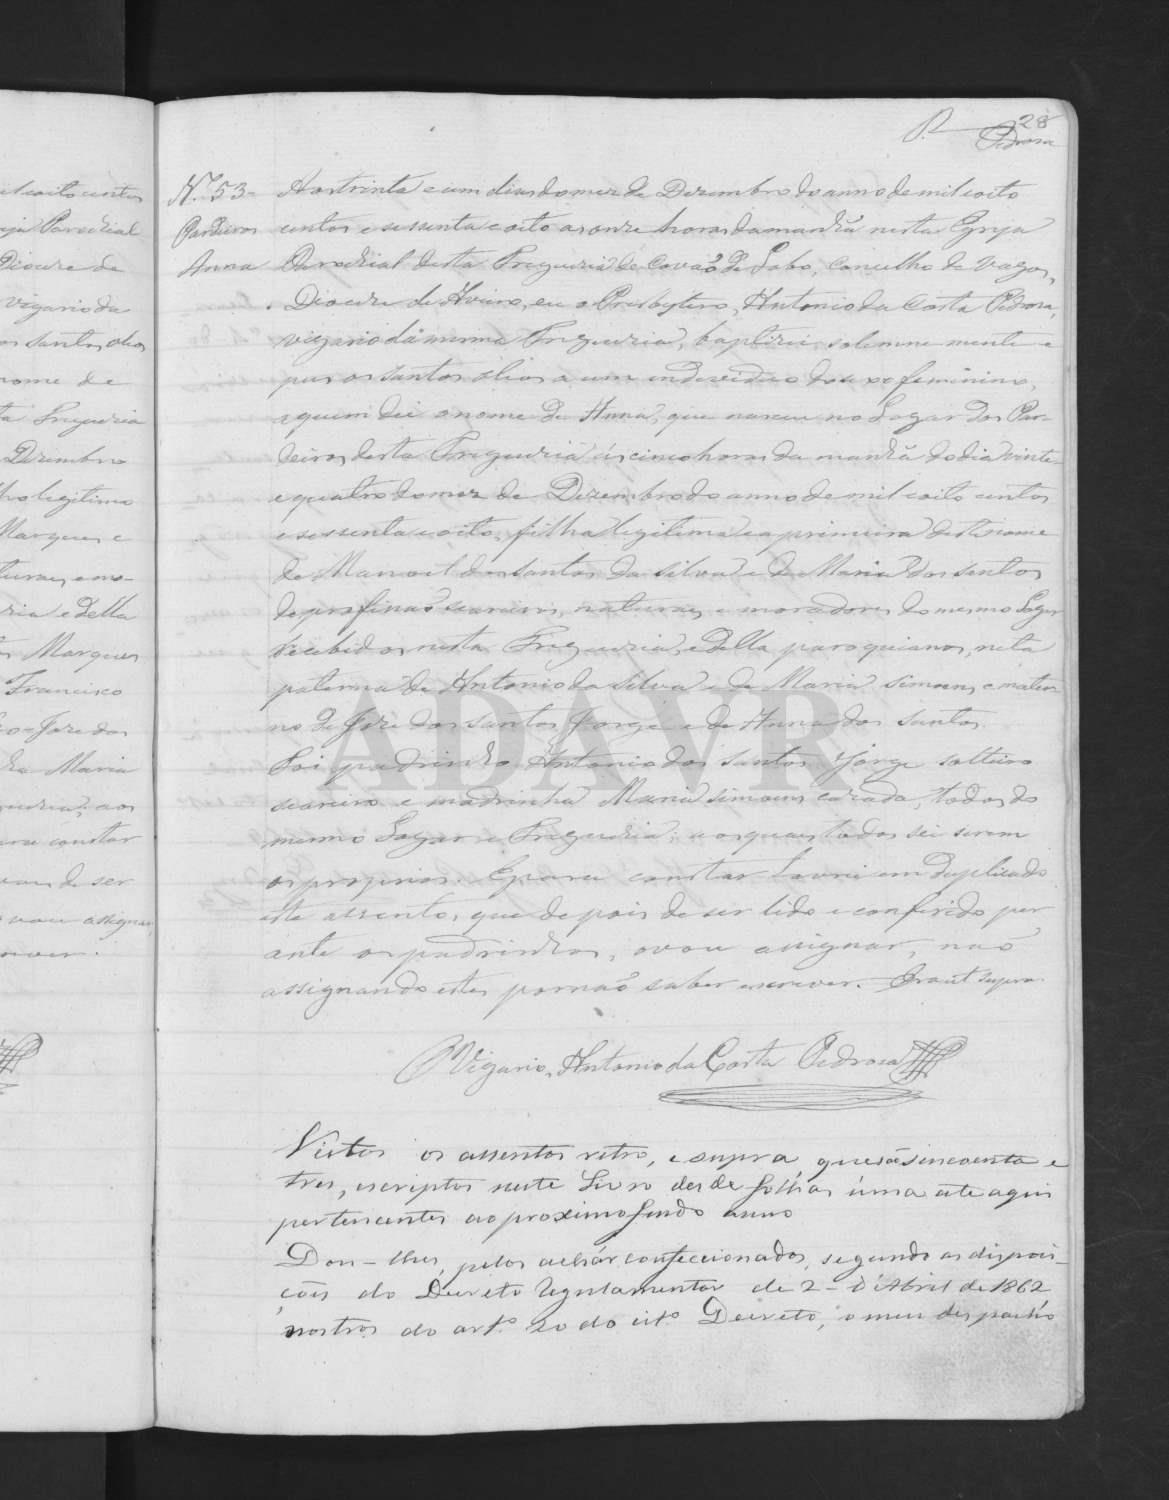 28
Pedrosa
Nº 53 -
Pardeiros
Anna
Aos trinta e um dias do mez de Dezembro do anno de mil oito
centos e sessenta e oito as onze horas da manhã nesta Egreja
Parochial desta Freguezia de Covaõ de Lobo, Concelho de Vagos,
Diocese de Aveiro, eu o Presbytero, Antonio da Costa Pedrosa,
vigario da mesma Freguezia, baptizei solemne mente e
pus os santos olios a um individuo do sexo feminino,
a quem dei o nome de Anna, que nasceu no Logar dos Par-
deiros desta Freguezia ás cinco horas da manhã do dia vinte
e quatro do mez de Dezembro do anno de mil oito centos
e sessenta e oito, filha legitima e a primeira deste nome
de Manoel dos santos da silva e de Maria dos santos
de profissaõ seareiros, naturaes e moradores do mesmo Logar
recebidos nesta Freguezia, e della paroquianos, neta
paterna de Antonio da silva e de Maria simoens, e mater
na de José dos santos Jorge e de Anna dos santos.
Foi padrinho Antonio dos santos Jorge solteiro
seareiro e madrinha Maria simoens cazada, todos do
mesmo Logar e Freguezia; e os quaes todos sei serem
os proprios. E para constar lavrei em duplicado
este assento, que depois de ser lido e conferido per
ante os padrinhos, o vou assignar, naõ
assignando estes por naõ saber escrever. Era ut supra
O Vigario, Antonio da Costa Pedrosa
Vistos os assentos retro, e supra, que são sincoenta e
tres, escriptos neste Livro desde folhas uma ate aqui
pertencentes ao proximo findo anno
Dou-lhes, pelos achár confeccionados, segundo as dispoi-
ções do Decreto Regulamentar de 2 d'Abril de 1862
nos tros do artº 20 do citº Decreto, o meu despacho
oito centos
Parochial
Diocese de
vigario da
santos olios
nome de
Freguezia
Dezembro
legitimo
Marques e
e mo-
e della
Marques
Francisco
José dos
Maria
aos
constar
de ser
vou assignar